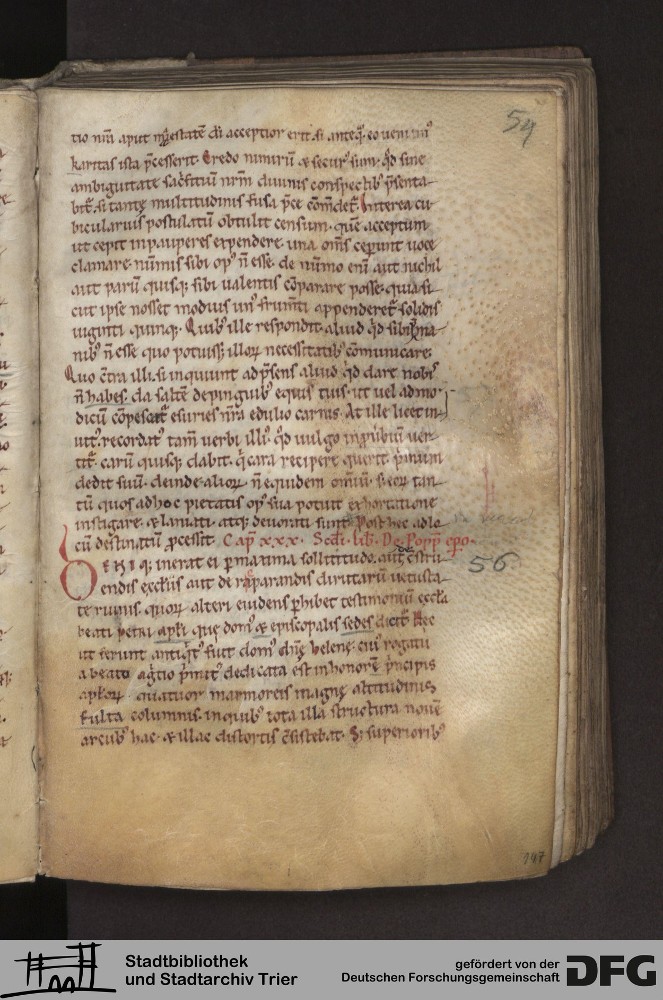 54
tio nr̄m aput mag̅estatē di̅ acceptior erit. si anteq̄ eo venim᷒
karitas ista p̄cesserit. Credo nimirū & secur᷒ sum. qd̄ sine
ambiguitate sac̄ficiū nr̄m divinis conspectib᷒ p̄senta-
bit᷑. si tantę multitudinis fusa p̄ce com̄det᷑. Interea cu
bicularius postulatū obtulit censum. quē acceptum
ut cepit in pauperes expendere. una om̄s ceperunt voce
clamare. nūmis sibi op᷒ n̄ esse. de nūmo eni̅ aut nichil
aut parū quisq; sibi valentis c̄parare posse. quia si-
cut ipse nosset modius un᷒ frum̄ti appenderet᷑ solidis
viginti quinq;. Quib᷒ ille respondit. aliud qd̄ sibi in ma-
nib᷒ n̄ esse quo potuiss; illoꝝ necessitatib᷒ cōmunicare.
Quo c̄tra illi. si inquiunt ad p̄sens aliud qd̄ dare nobis
n̄ habes. da saltē de pinguib᷒ equis tuis. ut vel admo-
dicū c̄pescat᷑ esuries nr̄a edulio carnis. At ille licet in-
vit᷒. recordat᷒ tam̄ verbi illi᷒. qd̄ vulgo in p̄verbiū ver-
tit᷑. carū quisq; dabit. q̄ cara recipere querit. p̄mum
dedit suū. deinde alioꝝ n̄ equidem omniū. s; eoꝝ tan-
tū quos ad hoc pietatis op᷒ sua potuit exhortatione
instigare. & laniati. atq; devorati sunt. Post hec ad lo-
cū destinatū p̄cessit. Cap̄ xxx. Scdi. lib. De Popp̄. ep̄o.
E nī q; inerat ei permaxima sollicitudo. aut de c̄stru-
endis ęccl̄iis aut de rep̄arandis dirutarū vetusta-
56
te ruinis. quoꝝ alteri evidens perhibet testimoniū ęccl̄a
beati petri apl̄i que dom᷒ & episcopalis sedes dicit᷑. Hec
ut ferunt antiq̄t᷒ fuit dom᷒ dn̄ę helenę. ei᷒ rogatu
a beato ag̅cio p̄mit᷒ dedicata est in honorē p̄ncipis
apl̄oꝝ. quatuor marmoreis magnę altitudinis
fulta columnis. in quib᷒ tota illa structura novē
arcub᷒ hac & illac distortis c̄sistebat. S; superiorib᷒
147
Stadtbibliothek
und Stadtarchiv Trier
gefördert von der
Deutschen Forschungsgemeinschaft
DFG